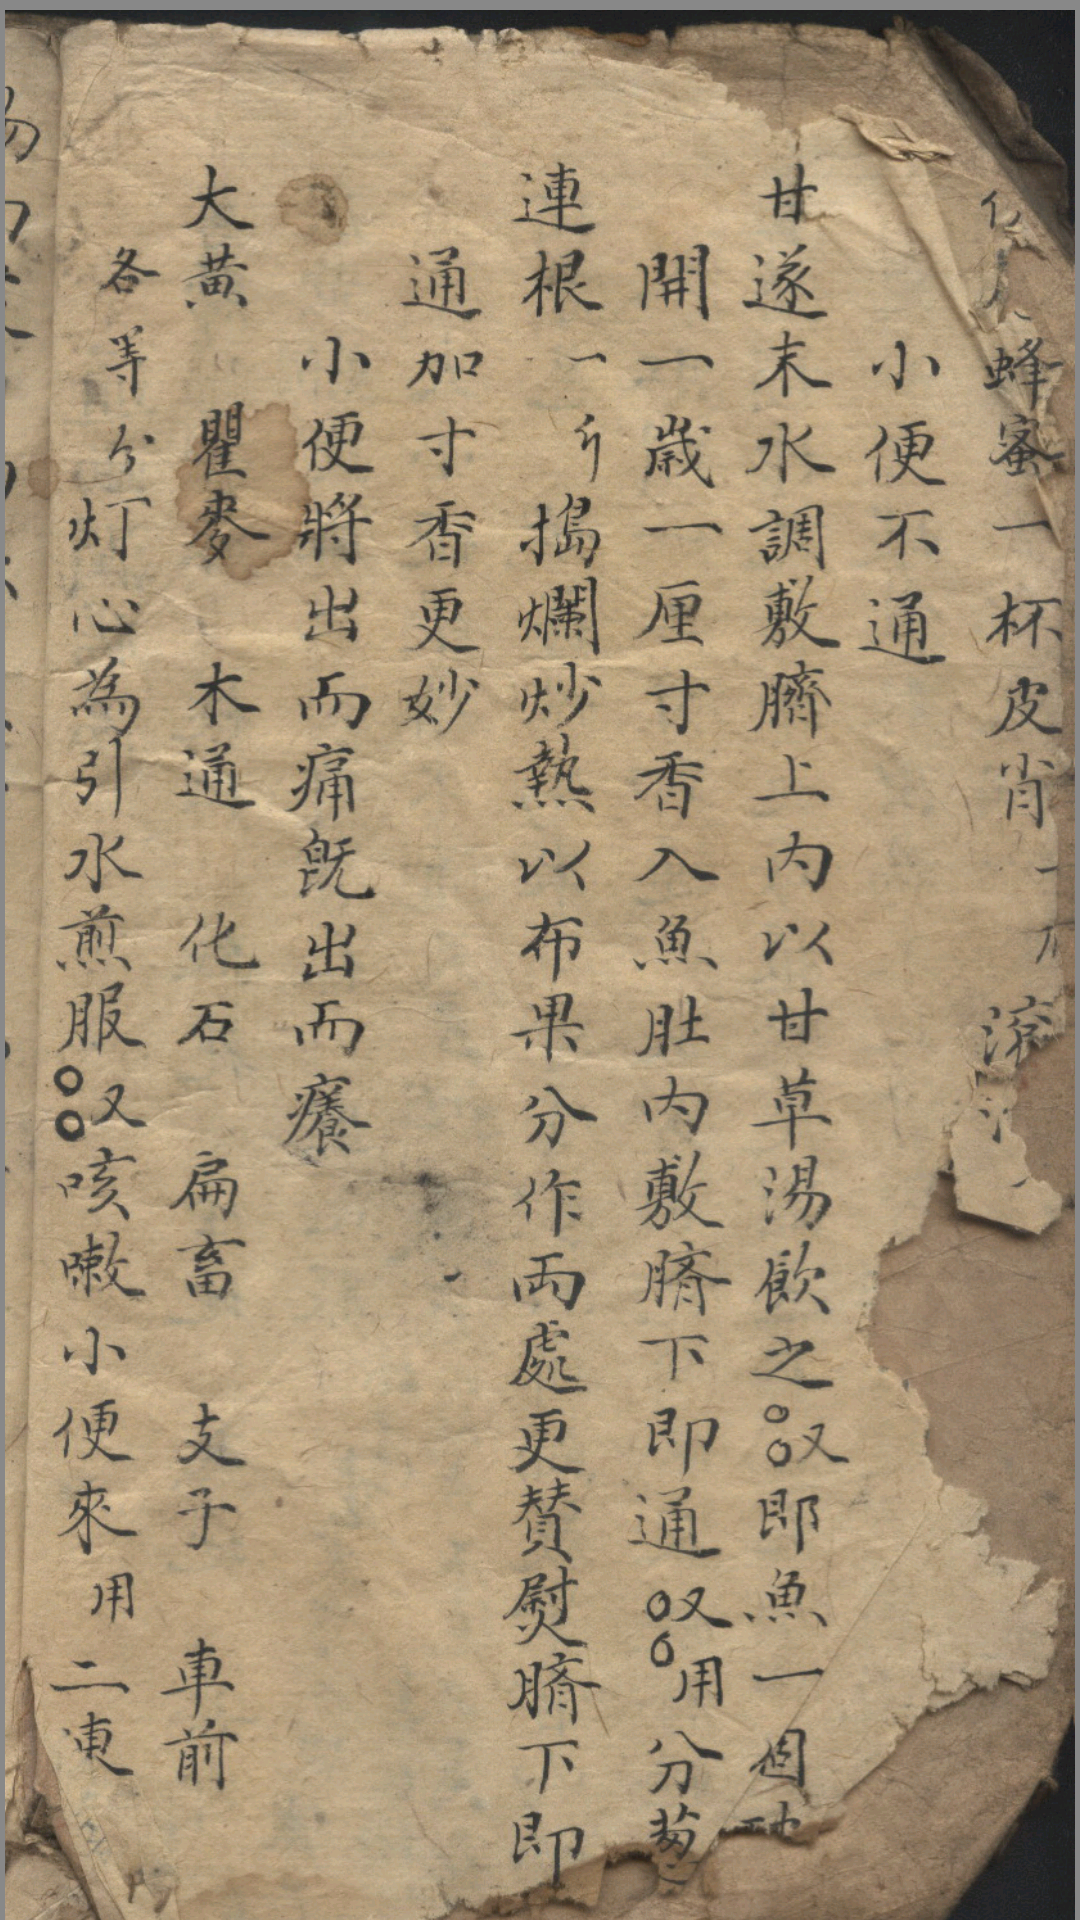 蜂蜜一杯皮肖
小便不通
甘遂末水調敷臍上内以甘草湯飲之○○又即魚一個
開一歲一厘寸香入魚肚内敷臍下即通○○又用分葱
連根一斤搗爛炒熱以布果分作両處更賛熨臍下即
通加寸香更妙
小便將出而痛旣出而癢
大黄 瞿麥 木通 化石 扁畜 支子 車前
各等分灯心為引水煎服○○又咳嗽小便來用二東